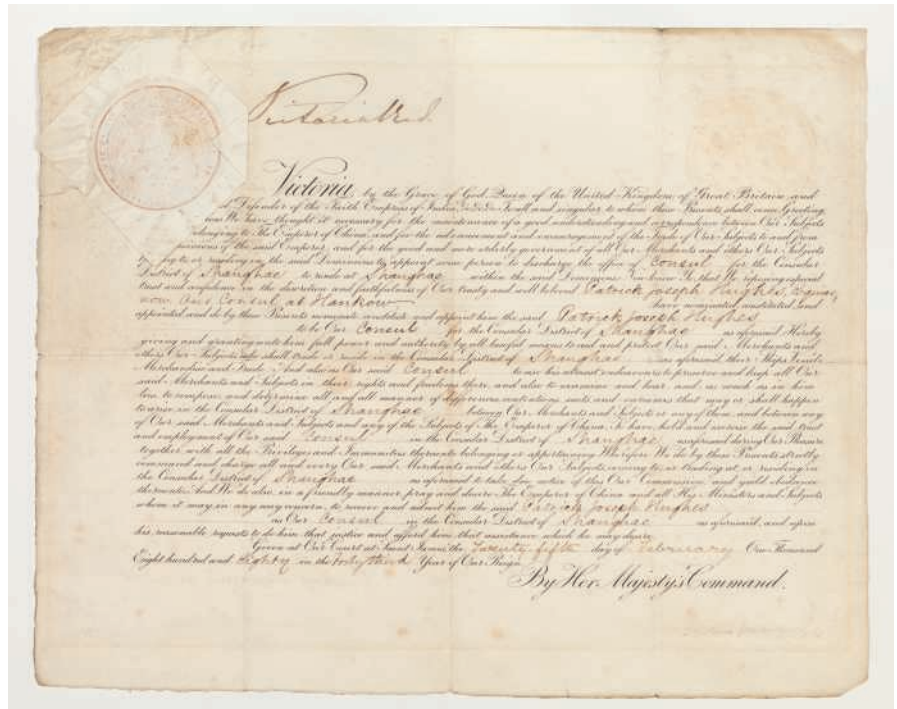 Victoria R & I
Victoria, by the Grace of God, Queen of the United Kingdom of Great Britain and
Defender of the Faith, Empress of India, &c. &c. &c. To all and singular to whom these Presents shall come, Greeting.
We have thought it necessary for the maintenance of a good understanding and between Our Subjects
belonging to The Emperor of China, and for the advancement and encouragement of the Trade of Our Subjects to and from
of the said Emperor, and for the good and more orderly government of all Our Merchants and others Our Subjects
to or residing in the said Dominions, to appoint some person to discharge the office of Consul for the Consular
District of Shanghae to reside at Shanghae within the said Dominions, that We reposing especial
trust and confidence in the discretion and faithfulness of Our trusty and well beloved Patrick Joseph Hughes, Esquire,
now Our Consul at Hankow have nominated, constituted, and
appointed, and do by these Presents nominate, constitute and appoint him the said Patrick Joseph Hughes
to be Our Consul for the Consular District of Shanghae as aforesaid, Hereby
giving and granting unto him full power and authority, by all lawful means to aid and protect Our said Merchants and
others Our Subjects who shall trade or reside in the Consular District of Shanghae as aforesaid, their Ships,
Merchandize and Trade. And also as Our said Consul to use his utmost endeavours to preserve and keep all Our
said Merchants and Subjects in their rights and freedoms there, and also to examine and hear, and as much as in him
lies to compose and determine all and all manner of differences, contentions, suits and variances that may or shall happen
to arise in the Consular District of Shanghae between Our Merchants and Subjects or any of them, and between any
of Our said Merchants and Subjects and any of the Subjects of The Emperor of China, To have, hold and exercise the said trust
and employment of Our said Consul in the Consular District of Shanghae as aforesaid during Our Pleasure
together with all the Privileges and Immunities thereunto belonging or appertaining. Wherefore We do by these Presents strictly
command and charge all and every Our said Merchants and others Our Subjects coming to, or trading at, or residing in
the Consular District of Shanghae as aforesaid to take due notice of this Our Commission and yield obedience
thereunto. And We do also, in a friendly manner, pray and desire The Emperor of China and all His Ministers and Subjects
whom it may in any way concern, to receive and admit him the said Patrick Joseph Hughes
as Our Consul in the Consular District of Shanghae as aforesaid, and upon
his reasonable requests to do him that justice and afford him that assistance which he may desire.
Given at Our Court at Saint James's, the Twenty fifth day of February One Thousand
Eight hundred and Eighty in the Forty third Year of Our Reign.
By Her Majesty's Command.